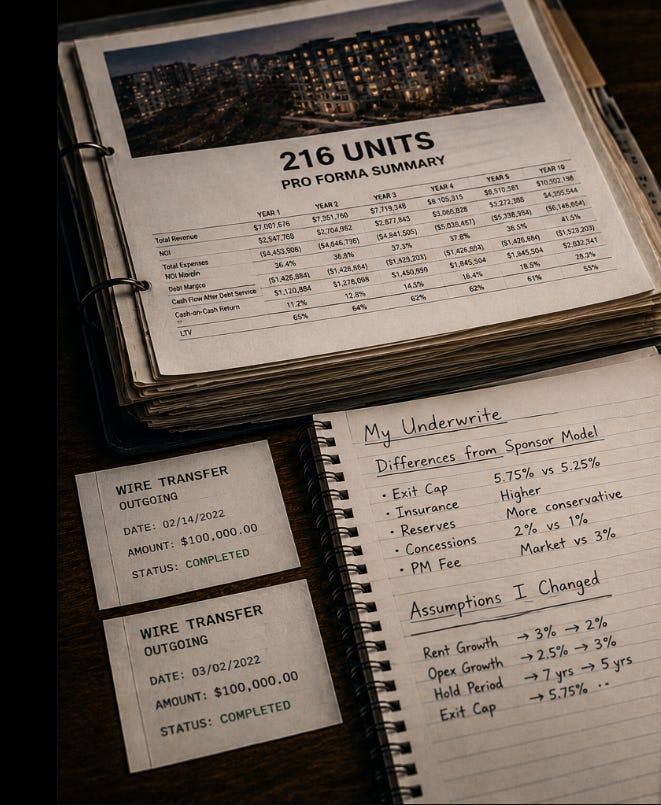 216 UNITS
PRO FORMA SUMMARY
YEAR 1 YEAR 2 YEAR 3 YEAR 4 YEAR 5 YEAR 10
Total Revenue $7,001,676 $7,351,760 $7,719,348 $8,105,315 $8,510,581 $10,502,198
NOI $2,547,768 $2,704,982 $2,877,843 $3,066,828 $3,272,388 $4,355,544
Total Expenses ($4,453,908) ($4,646,736) ($4,841,505) ($5,038,487) ($5,238,984) ($6,146,654)
NOI Margin 36.4% 36.8% 37.3% 37.8% 38.5% 41.5%
Debt ($1,426,884) ($1,426,884) ($1,423,203) ($1,426,884) ($1,426,684) ($1,523,203)
Cash Flow After Debt Service $1,120,884 $1,278,098 $1,450,959 $1,845,504 $1,845,504 $2,832,341
Cash-on-Cash Return 11.2% 12.8% 14.5% 16.4% 18.5% 28.3%
LTV 65% 64% 62% 62% 61% 55%
WIRE TRANSFER
OUTGOING
DATE: 02/14/2022
AMOUNT: $100,000.00
STATUS: COMPLETED
WIRE TRANSFER
OUTGOING
DATE: 03/02/2022
AMOUNT: $100,000.00
STATUS: COMPLETED
My Underwrite
Differences from Sponsor Model
• Exit Cap 5.75% vs 5.25%
• Insurance Higher
• Reserves More conservative
• Concessions 2% vs 1%
• PM Fee Market vs 3%
Assumptions I Changed
Rent Growth → 3% → 2%
Opex Growth → 2.5% → 3%
Hold Period → 7 yrs → 5 yrs
Exit Cap → 5.75% ..